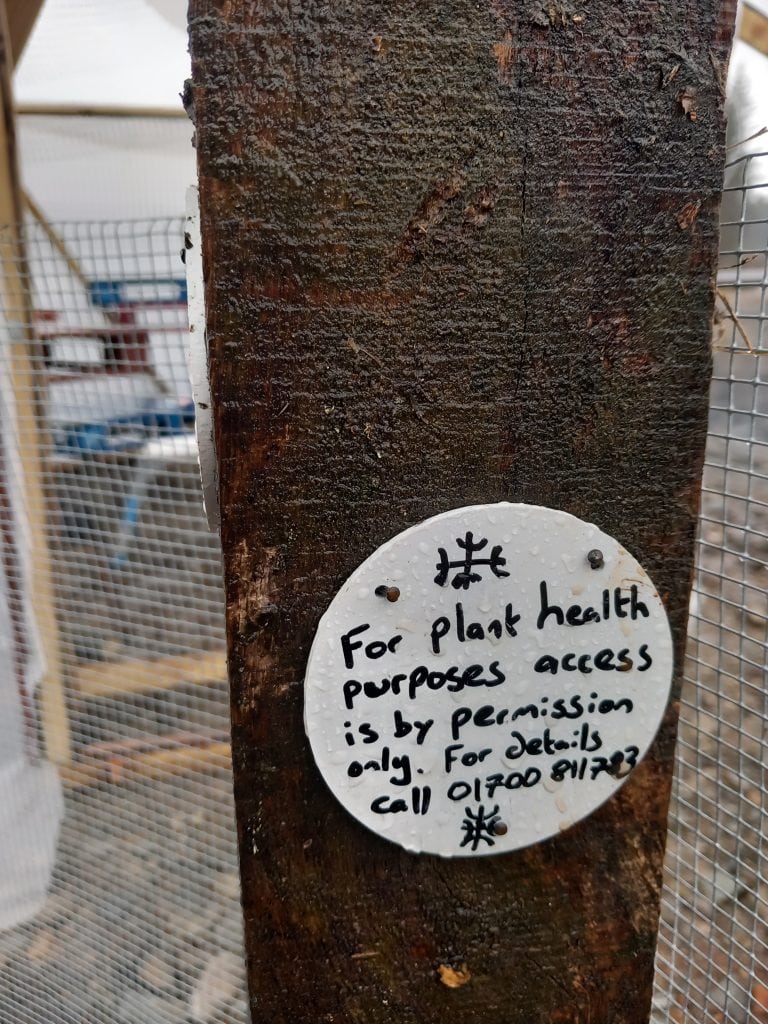 For plant health
purposes access
is by permission
only. For details
call 01700 811783